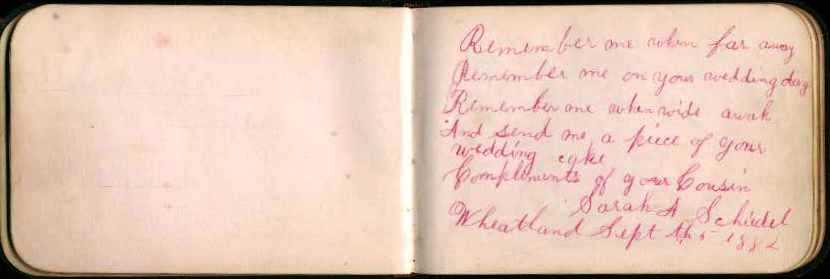 Remember me when far away
Remember me on your wedding day
Remember me when wide awak
And send me a piece of your
wedding cake
Compliments of your Cousin
Sarah A Schiedel
Wheatland Sept th 5 1882